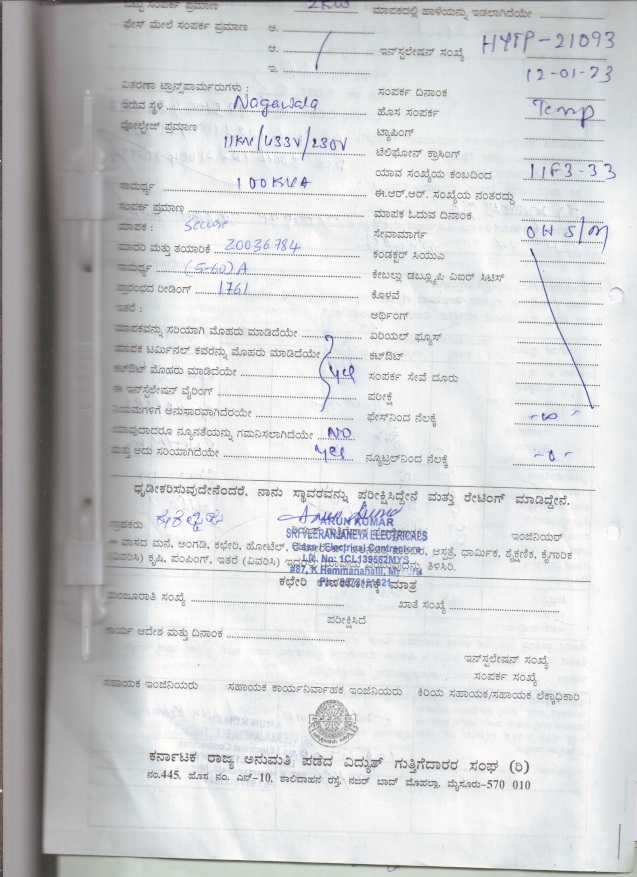 ಒಟ್ಟು ಸಂಪರ್ಕ ಪ್ರಮಾಣ 2KW ಮಾಪಕದಲ್ಲಿ ಹಾಳೆಯನ್ನು ಇಡಲಾಗಿದೆಯೇ
ಫೇಸ್ ಮೇಲೆ ಸಂಪರ್ಕ ಪ್ರಮಾಣ ಅ.
ಆ. ಇನ್‌ಸ್ಟಲೇಷನ್ ಸಂಖ್ಯೆ HYTP-21093
ಇ. 12-01-23
ವಿತರಣಾ ಟ್ರಾನ್ಸ್‌ಫಾರ್ಮರುಗಳು : ಸಂಪರ್ಕ ದಿನಾಂಕ
ಇರುವ ಸ್ಥಳ Nagawala ಹೊಸ ಸಂಪರ್ಕ Temp
ವೋಲ್ಟೇಜ್ ಪ್ರಮಾಣ 11KV/433V/230V ಟ್ಯಾಪಿಂಗ್
ಟೆಲಿಫೋನ್ ಕ್ರಾಸಿಂಗ್
ಯಾವ ಸಂಖ್ಯೆಯ ಕಂಬದಿಂದ 11F3-33
ಸಾಮರ್ಥ್ಯ 100KVA ಈ.ಆರ್.ಆರ್. ಸಂಖ್ಯೆಯ ನಂತರದ್ದು
ಸಂಪರ್ಕ ಪ್ರಮಾಣ ಮಾಪಕ ಓದುವ ದಿನಾಂಕ
ಮಾಪಕ : Secure ಸೇವಾಮಾರ್ಗ OH S/M
ಮಾದರಿ ಮತ್ತು ತಯಾರಿಕೆ 20036784 ಕಂಡಕ್ಟರ್ ಸಿಯುಎ
ಸಾಮರ್ಥ್ಯ (5-60)A ಕೇಬಲ್ಲು ಡಬ್ಲ್ಯೂಪಿ ವಿಐರ್ ಸಿಟಿಸ್
ಪ್ರಾರಂಭದ ರೀಡಿಂಗ್ 1761 ಕೊಳವೆ
ಇತರೆ : ಆರ್ಥಿಂಗ್
ಮಾಪಕವನ್ನು ಸರಿಯಾಗಿ ಮೊಹರು ಮಾಡಿದೆಯೇ ಏರಿಯಲ್ ಫ್ಯೂಸ್
ಮಾಪಕ ಟರ್ಮಿನಲ್ ಕವರನ್ನು ಮೊಹರು ಮಾಡಿದೆಯೇ ಕಟ್‌ಔಟ್
ಕಟ್‌ಔಟ್ ಮೊಹರು ಮಾಡಿದೆಯೇ Yes ಸಂಪರ್ಕ ಸೇವೆ ದೂರು
ಈ ಇನ್‌ಸ್ಟಲೇಷನ್ ವೈರಿಂಗ್ ಪರೀಕ್ಷೆ
ನಿಯಮಗಳಿಗೆ ಅನುಸಾರವಾಗಿದೆರಯೇ ಫೇಸ್‌ನಿಂದ ನೆಲಕ್ಕೆ -∞-
ಯಾವುದಾದರೂ ನ್ಯೂನತೆಯನ್ನು ಗಮನಿಸಲಾಗಿದೆಯೇ NO
ಮತ್ತು ಅದು ಸರಿಯಾಗಿದೆಯೇ Yes ನ್ಯೂಟ್ರಲ್‌ನಿಂದ ನೆಲಕ್ಕೆ -0-
ಧೃಡೀಕರಿಸುವುದೇನೆಂದರೆ. ನಾನು ಸ್ಥಾವರವನ್ನು ಪರೀಕ್ಷಿಸಿದ್ದೇನೆ ಮತ್ತು ರೇಟಿಂಗ್ ಮಾಡಿದ್ದೇನೆ.
ARUN KUMAR
ಗ್ರಾಹಕರು SRI VEERANJANEYA ELECTRICALS ಇಂಜಿನಿಯರ್
ವಾಸದ ಮನೆ, ಅಂಗಡಿ, ಕಛೇರಿ, ಹೋಟೆಲ್, Electrical Contractors ಆಸ್ಪತ್ರೆ, ಧಾರ್ಮಿಕ, ಶೈಕ್ಷಣಿಕ, ಕೈಗಾರಿಕ
(ವಿವರಿಸಿ) ಕೃಷಿ, ಪಂಪಿಂಗ್, ಇತರೆ (ವಿವರಿಸಿ) Lic. No: 1CL139562MYS ತಿಳಿಸಿರಿ.
#87, K Hemmanahalli,
ಕಛೇರಿ ಉಪಯೋಗಕ್ಕೆ ಮಾತ್ರ
ಮಂಜೂರಾತಿ ಸಂಖ್ಯೆ ಖಾತೆ ಸಂಖ್ಯೆ
ಪರೀಕ್ಷಿಸಿದೆ
ಕಾರ್ಯ ಆದೇಶ ಮತ್ತು ದಿನಾಂಕ
ಇನ್‌ಸ್ಟಲೇಷನ್ ಸಂಖ್ಯೆ
ಸಂಪರ್ಕ ಸಂಖ್ಯೆ
ಸಹಾಯಕ ಇಂಜಿನಿಯರು ಸಹಾಯಕ ಕಾರ್ಯನಿರ್ವಾಹಕ ಇಂಜಿನಿಯರು ಕಿರಿಯ ಸಹಾಯಕ/ಸಹಾಯಕ ಲೆಕ್ಕಾಧಿಕಾರಿ
ಕರ್ನಾಟಕ ರಾಜ್ಯ ಅನುಮತಿ ಪಡೆದ ವಿದ್ಯುತ್ ಗುತ್ತಿಗೆದಾರರ ಸಂಘ (ರಿ)
ನಂ.445, ಹೊಸ ನಂ. ಎನ್-10, ಶಾಲಿವಾಹನ ರಸ್ತೆ, ನಜರ್ ಬಾದ್ ಮೊಹಲ್ಲಾ, ಮೈಸೂರು-570 010